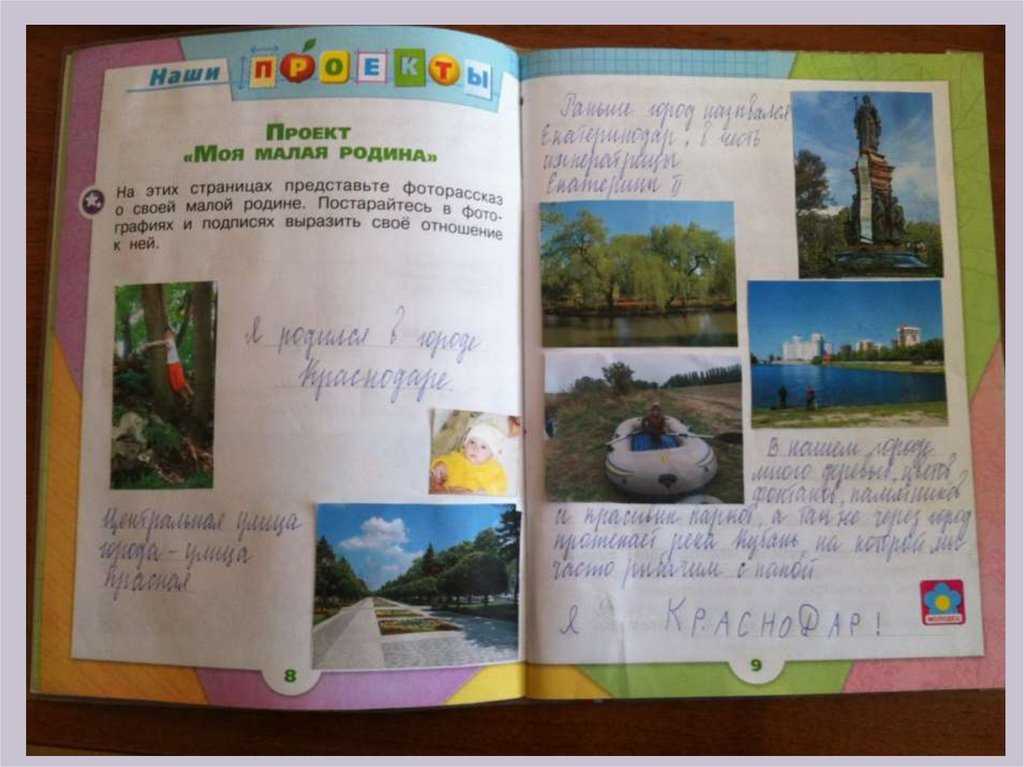 Наши ПРОЕКТЫ
ПРОЕКТ
«МОЯ МАЛАЯ РОДИНА»
На этих страницах представьте фоторассказ
о своей малой родине. Постарайтесь в фото-
графиях и подписях выразить своё отношение
к ней.
Я родился в городе
Краснодаре.
Центральная улица
города - улица
Красная
8
Раньше город назывался
Екатеринодар, в честь
императрицы
Екатерины II
В нашем городе
много деревьев, цветов
фонтанов, памятников
и красивых парков, а так же через город
протекает река Кубань, на которой мы
часто рыбачим с папой
Я КРАСНОДАР!
МОЛОДЕЦ
9